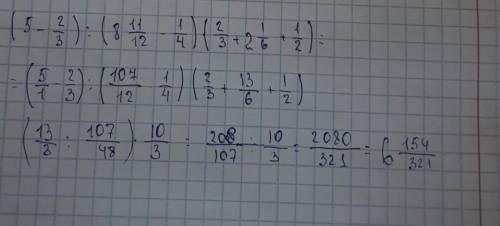 (5 - 2/3) : (8 11/12 - 1/4) (2/3 + 2 1/6 + 1/2) =
= (5/1 - 2/3) : (107/12 - 1/4) (2/3 + 13/6 + 1/2)
(13/3 : 107/48) · 10/3 = 208/107 · 10/3 = 2080/321 = 6 154/321